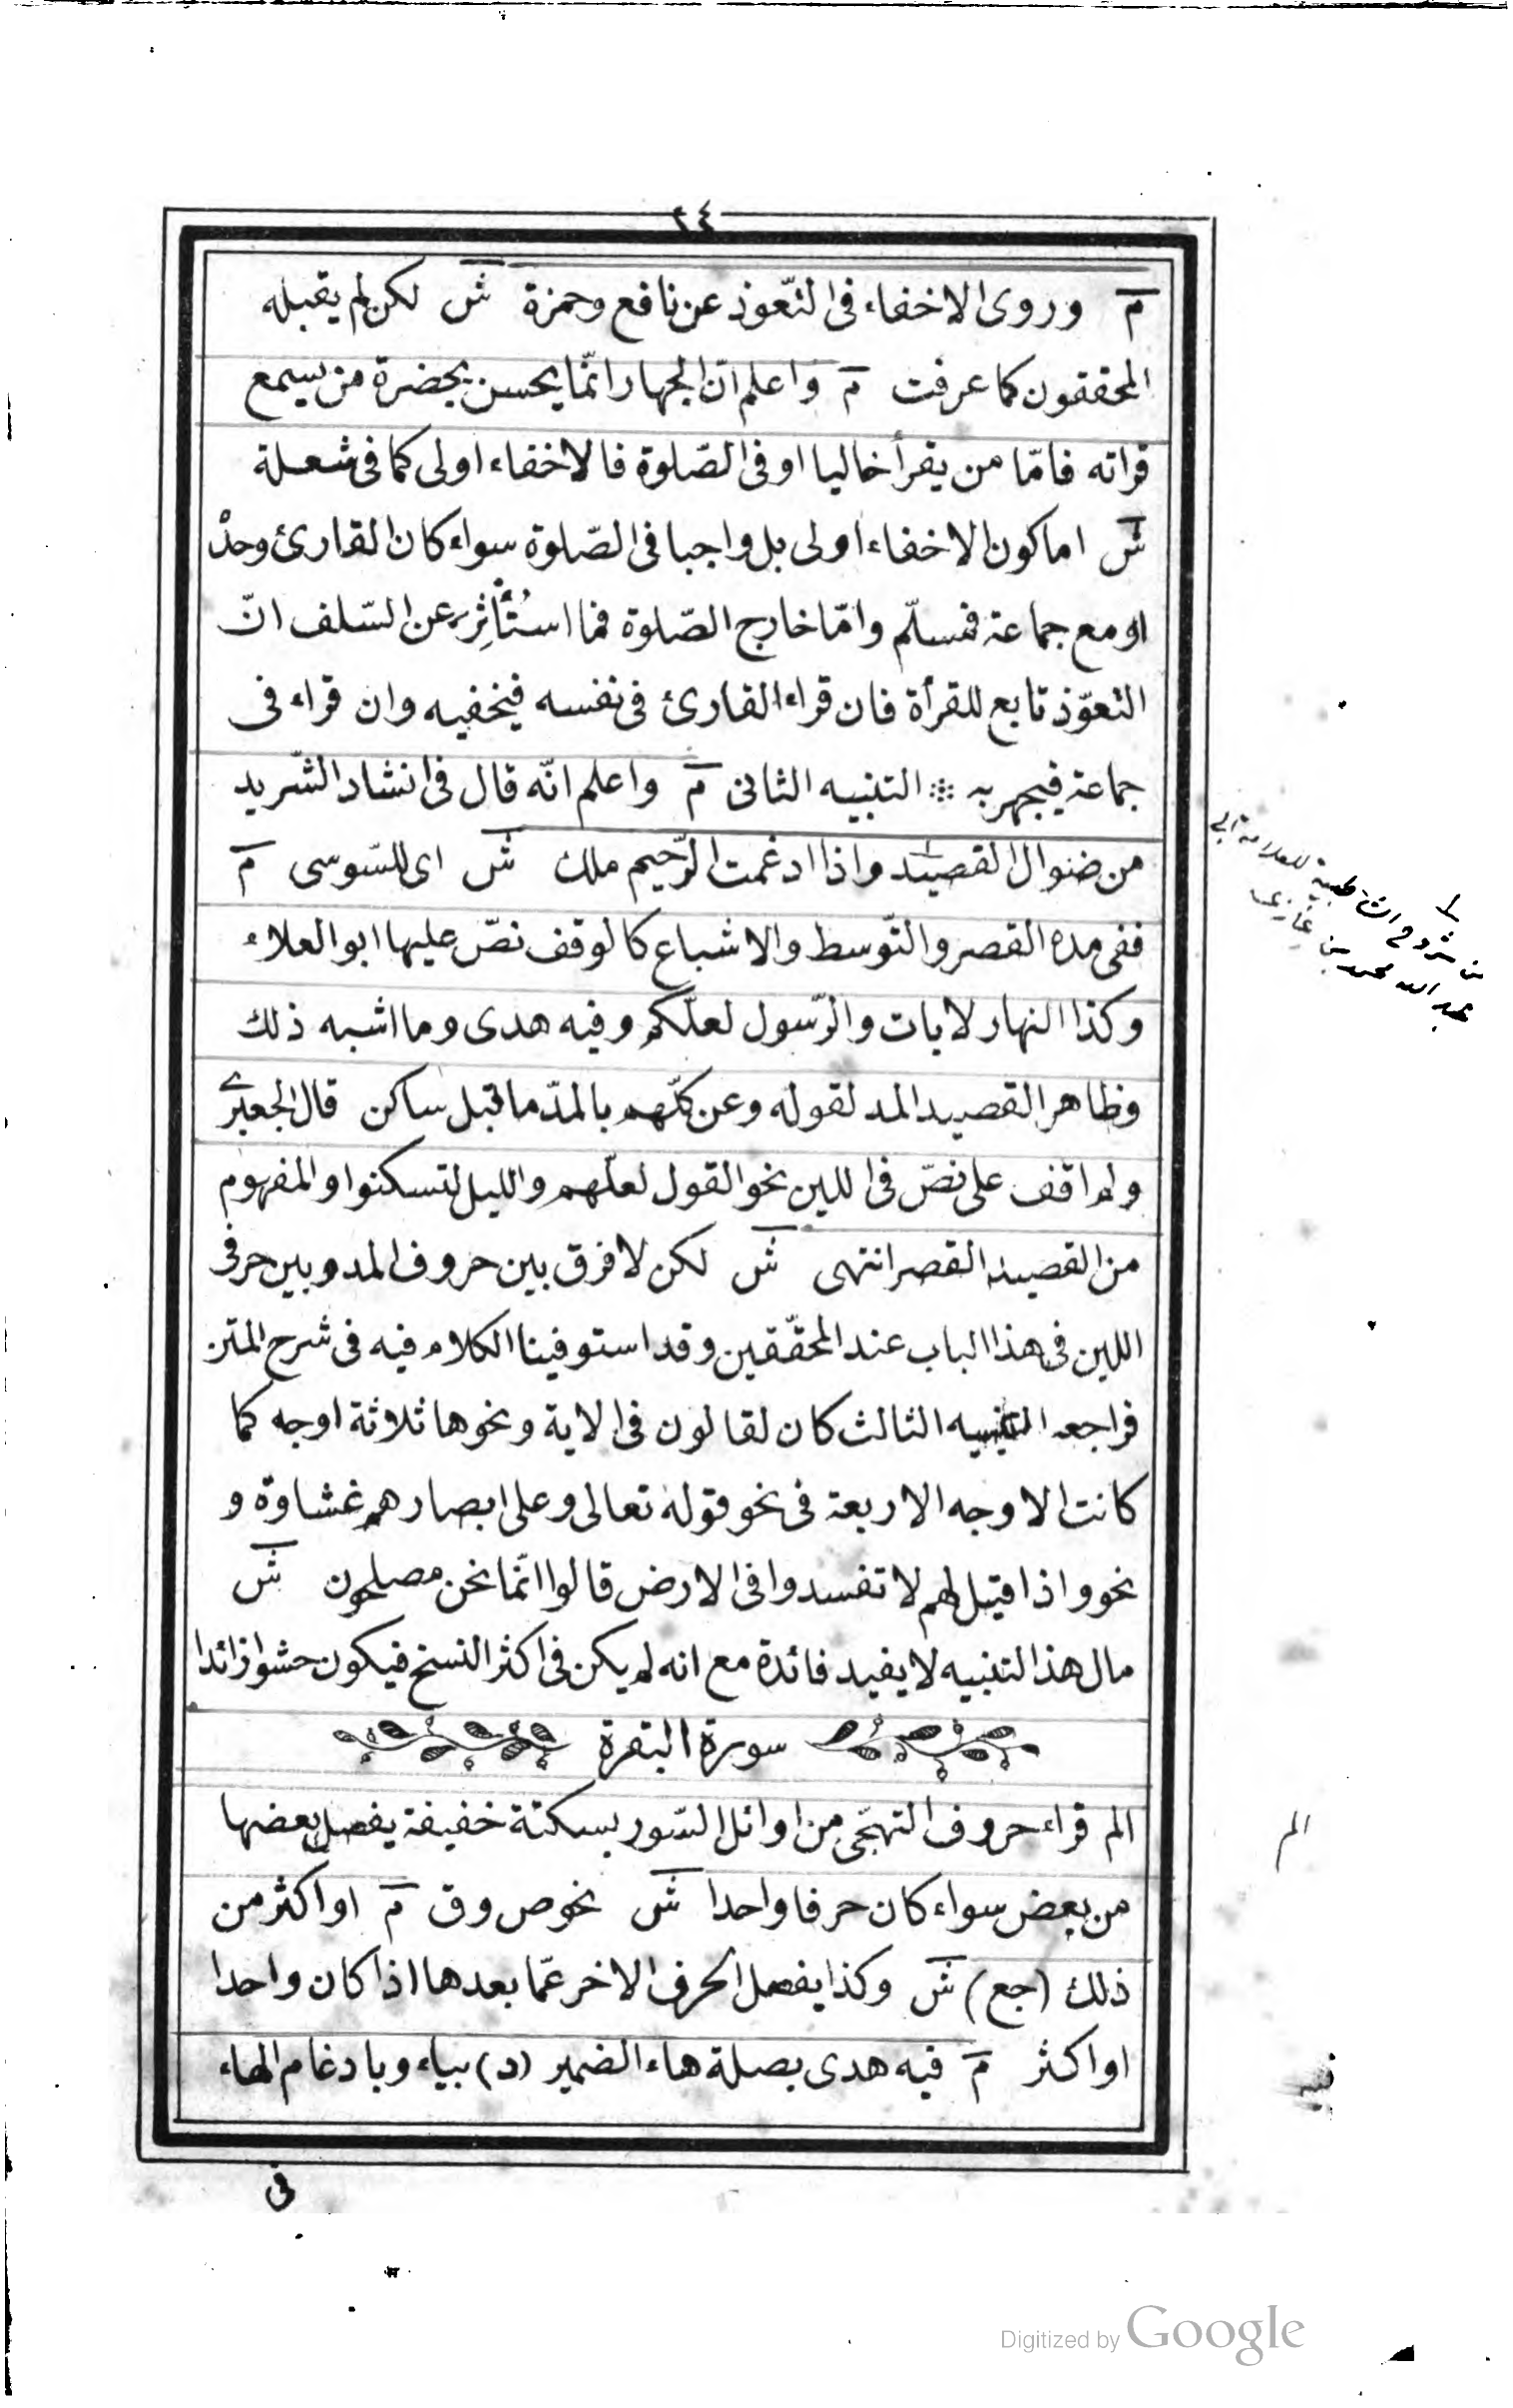 ٢٤
م وروى الاخفاء فى التّعوذ عن نافع وحمزة ش لكن لم يقبله
المحققون كما عرفت م واعلم انّ الجهار انّما يحسن بحضرة من يسمع
قراته فامّا من يقرأ خاليا او فى الصّلوة فالاخفاء اولى كما فى شعلة
ش اما كون الاخفاء اولى بل واجبا فى الصّلوة سواء كان القارئ وحدْ
او مع جماعة فمسلّم وامّا خارج الصّلوة فما استُأثِر عن السّلف انّ
التعوّذ تابع للقرأة فان قراء القارئ فى نفسه فيخفيه وان قراء فى
جماعة فيجهر به ⁘ التنبيه الثانى م واعلم انّه قال فى انشاد الشّريد
من ضنوال القصيد واذا ادغمت الرّحيم ملك ش اى للسّوسى م
ففى مده القصر والتّوسط والاشباع كالوقف نصّ عليها ابو العلاء
وكذا النهار لايات والرّسول لعلّكم وفيه هدى وما اشبه ذلك
وظاهر القصيد المد لقوله وعن كلّهم بالمدّ ما قبل ساكن قال الجعبرى
ولم اقف على نصّ فى اللين نحو القول لعلّهم والليل لتسكنوا والمفهوم
من القصيد القصر انتهى ش لكن لا فرق بين حروف المد وبين حرفى
اللين فى هذا الباب عند المحقّقين وقد استوفينا الكلام فيه فى شرح المتن
فراجعه التنبيه الثالث كان لقالون فى الاية ونحوها ثلاثة اوجه كما
كانت الاوجه الاربعة فى نحو قوله تعالى وعلى ابصارهم غشاوة و
نحو واذا قيل لهم لا تفسدوا فى الارض قالوا انّما نحن مصلحون ش
مال هذا التنبيه لا يفيد فائدة مع انه لم يكن فى اكثر النسخ فيكون حشوا زائدا
سورة البقرة
الم قراء حروف التهجّى من اوائل السّور بسكتة خفيفة يفصل بعضها
من بعض سواء كان حرفا واحدا ش نحو ص وق م او اكثر من
ذلك (جع) ش وكذا يفصل الحرف الاخر عمّا بعدها اذا كان واحدا
او اكثر م فيه هدى بصلة هاء الضمير (د) بياء وبادغام الهاء
فى
من شروح الشاطبية للعلامة ابى
عبد الله محمد بن غازى
الم
فيه
Digitized by Google